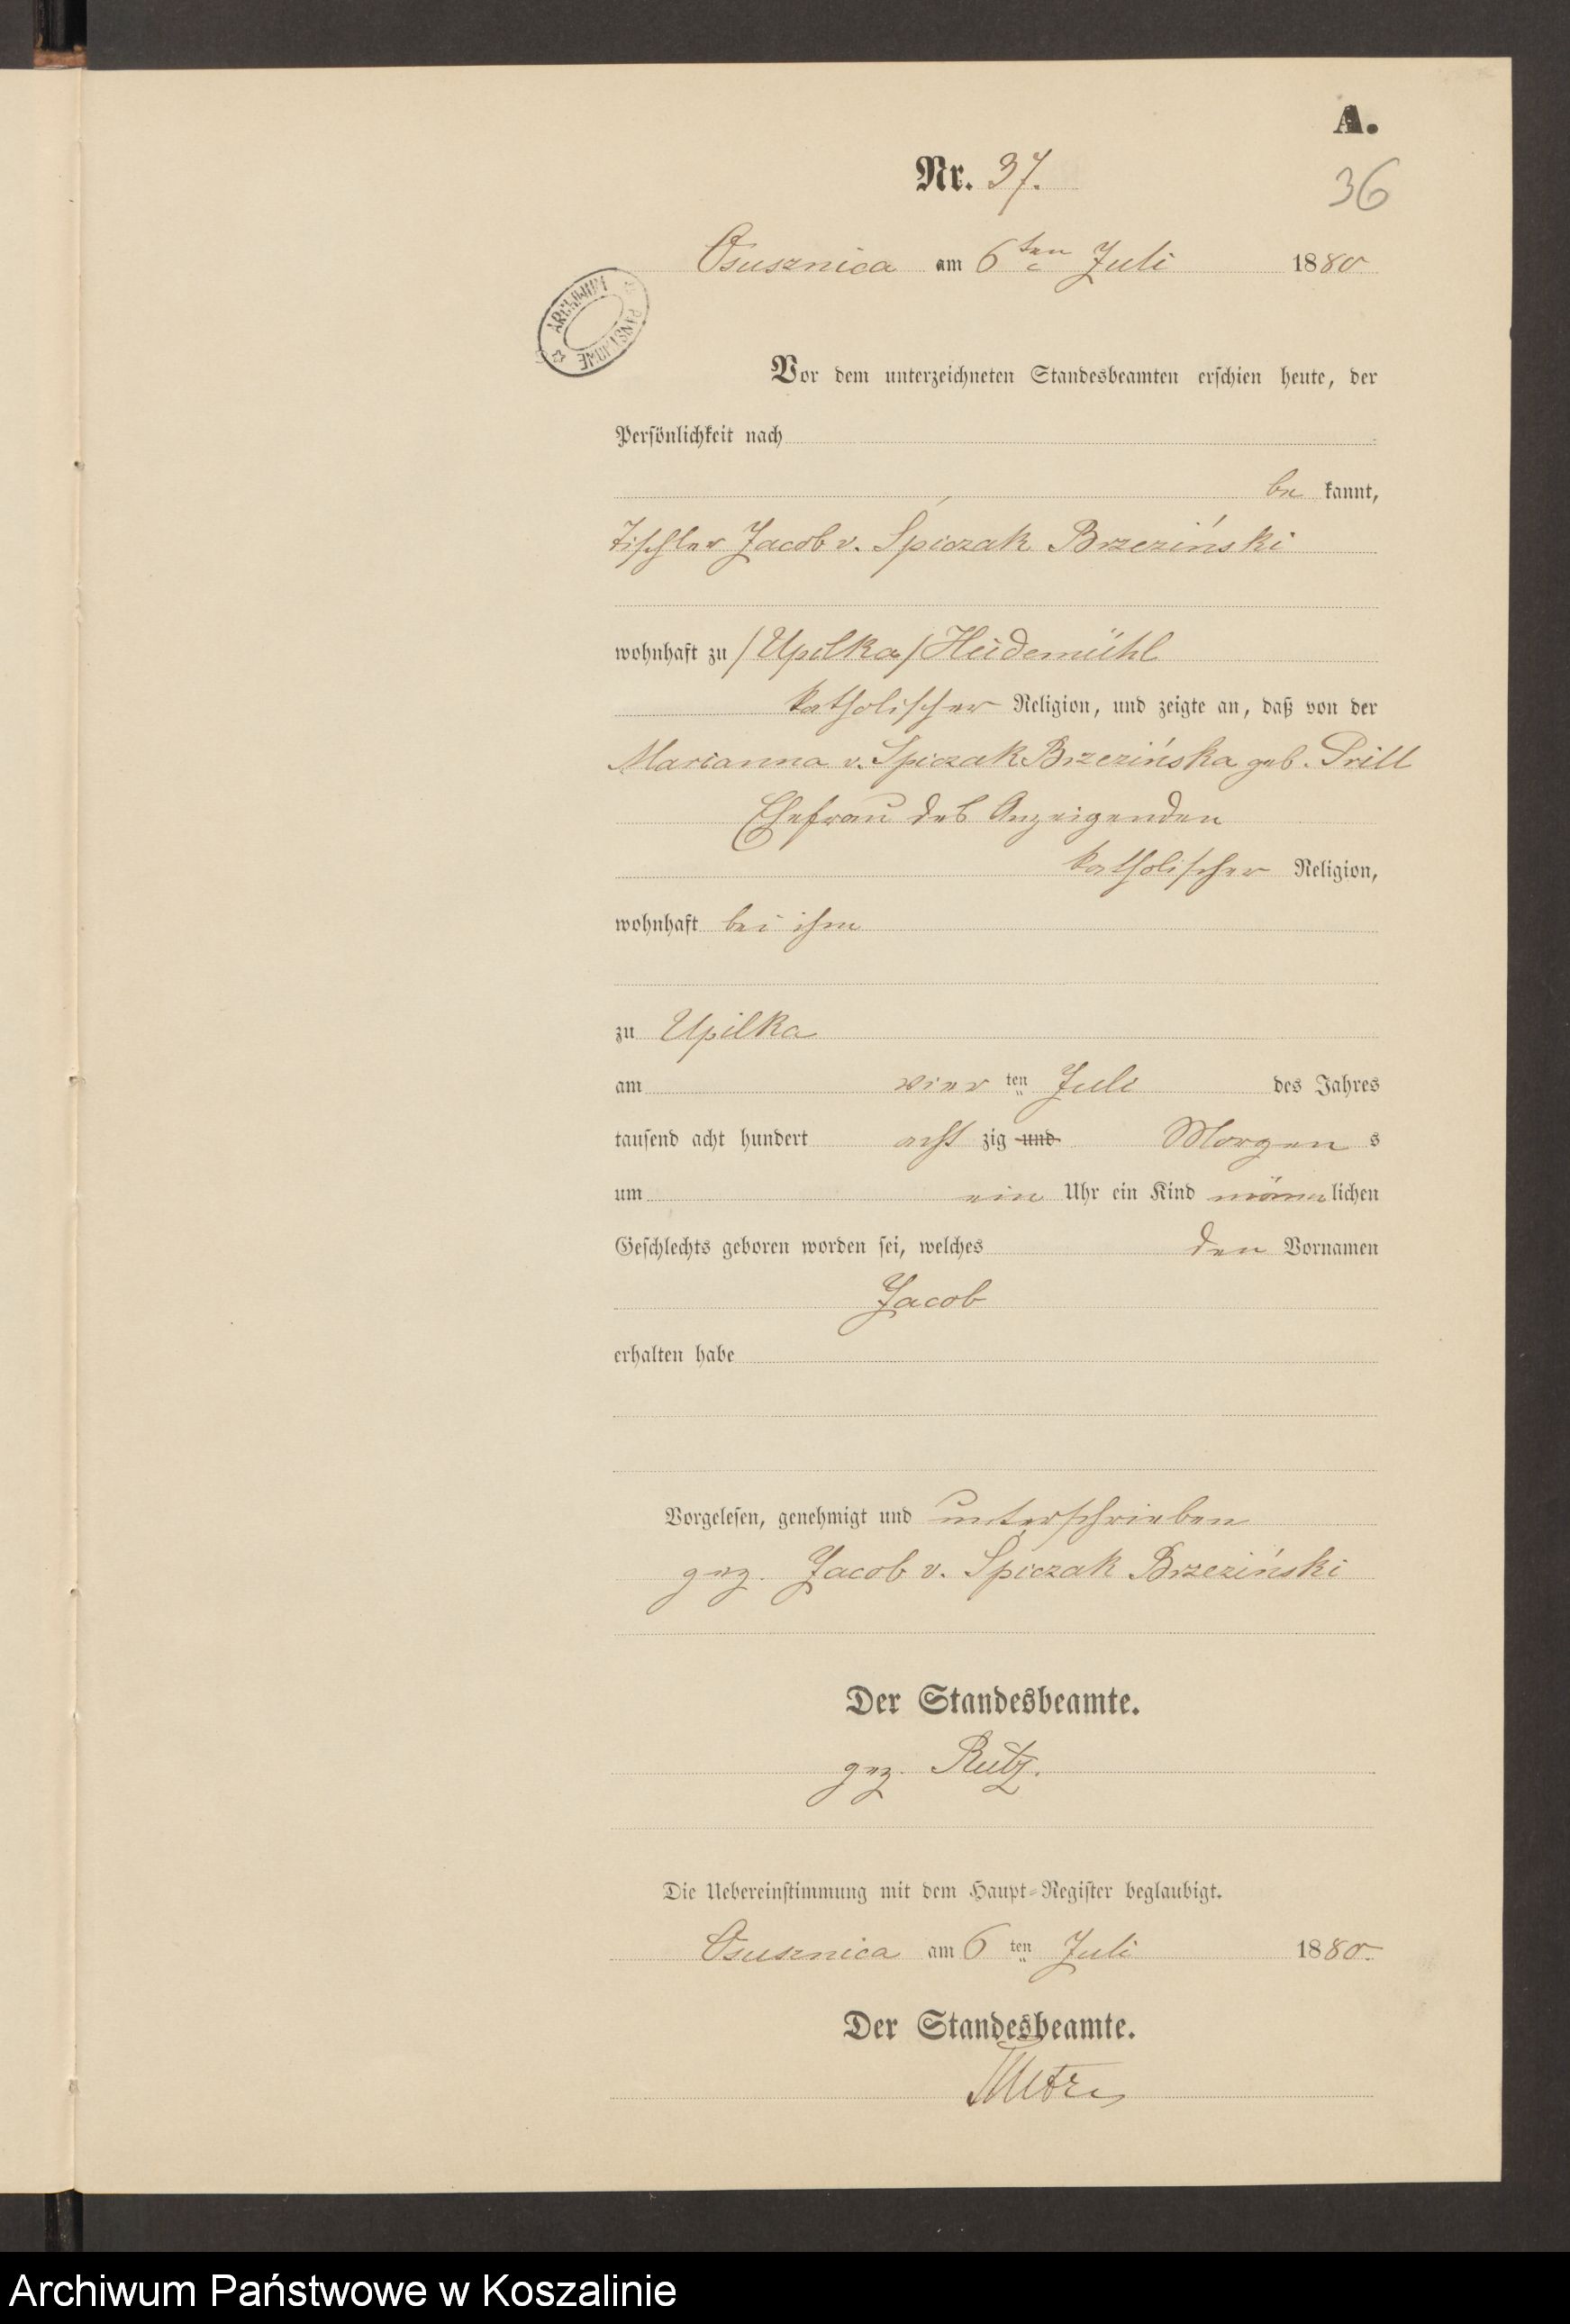 A.
Nr. 37.
36
Osusznica am 6ten Juli 1880
ARCHIWUM PAŃSTWOWE
Vor dem unterzeichneten Standesbeamten erschien heute, der
Persönlichkeit nach
be kannt,
Tischler Jacob v. Śpiczak Brzeziński
wohnhaft zu /Upilka/ Heidemühl
katholischer Religion, und zeigte an, daß von der
Marianna v. Spiczak Brzezińska geb. Prill
Ehefrau des Anzeigenden
katholischer Religion,
wohnhaft bei ihm
zu Upilka
am vier ten Juli des Jahres
tausend acht hundert acht zig und Morgen s
um ein Uhr ein Kind männlichen
Geschlechts geboren worden sei, welches den Vornamen
Jacob
erhalten habe
Vorgelesen, genehmigt und unterschrieben
gez. Jacob v. Śpiczak Brzeziński
Der Standesbeamte.
gez. Rutz.
Die Uebereinstimmung mit dem Haupt-Register beglaubigt.
Osusznica am 6 ten Juli 1880.
Der Standesbeamte.
Archiwum Państwowe w Koszalinie